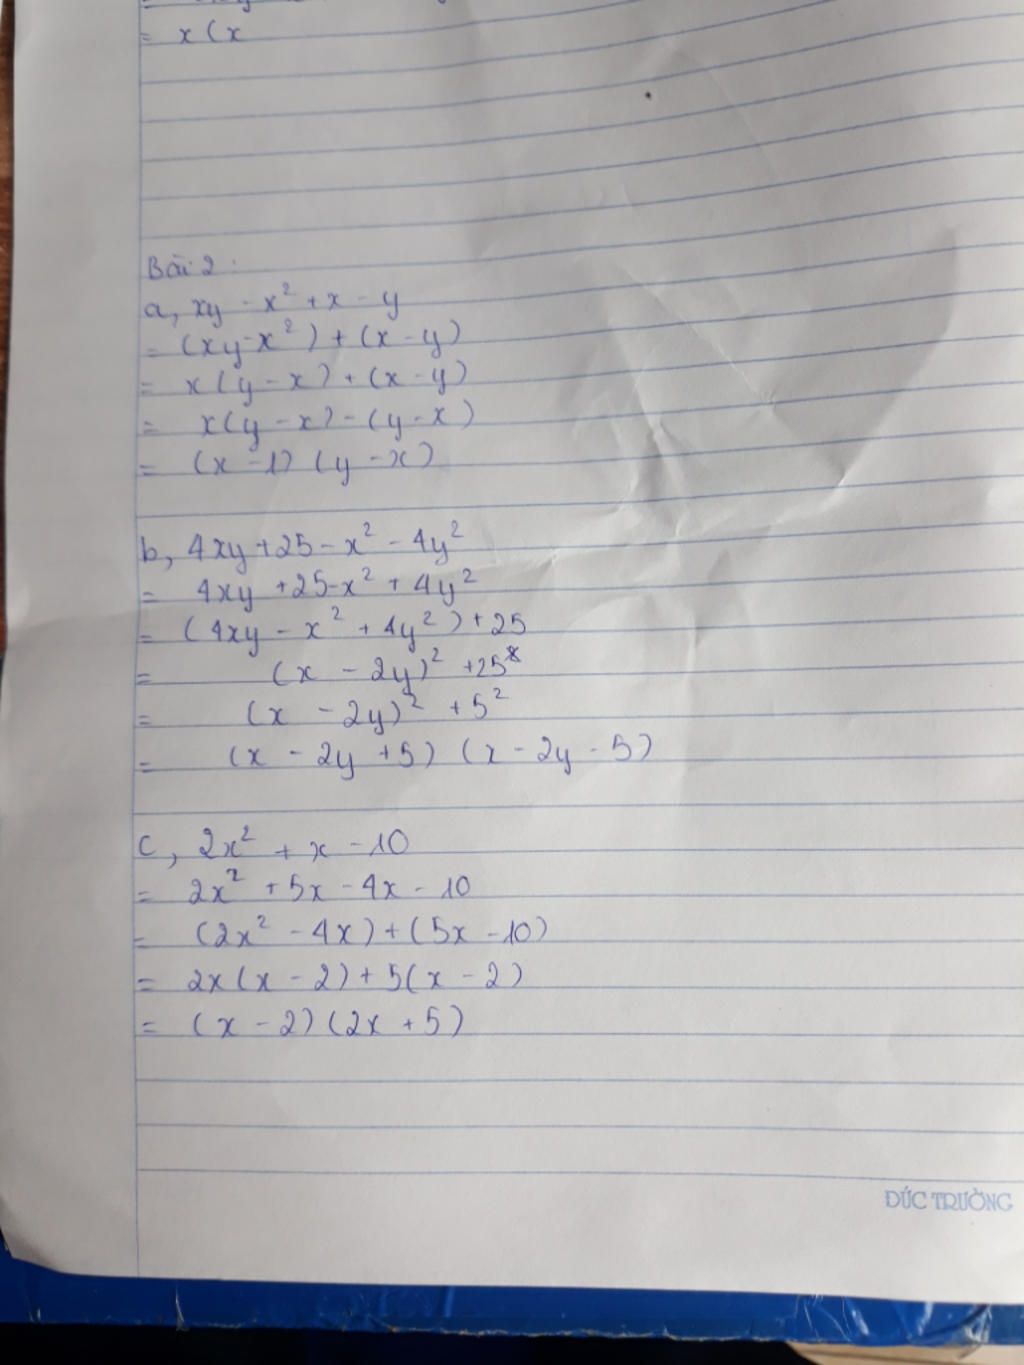 = x (x
Bài 2:
a, xy - x² + x - y
= (xy-x²) + (x - y)
= x(y - x) + (x - y)
= x(y - x) - (y - x)
= (x - 1) (y - x)
b, 4xy + 25 - x² - 4y²
= 4xy + 25 - x² + 4y²
= (4xy - x² + 4y²) + 25
= (x - 2y)² + 25
= (x - 2y)² + 5²
= (x - 2y + 5) (x - 2y - 5)
c, 2x² + x - 10
= 2x² + 5x - 4x - 10
= (2x² - 4x) + (5x - 10)
= 2x(x - 2) + 5(x - 2)
= (x - 2) (2x + 5)
ĐỨC TRƯỜNG